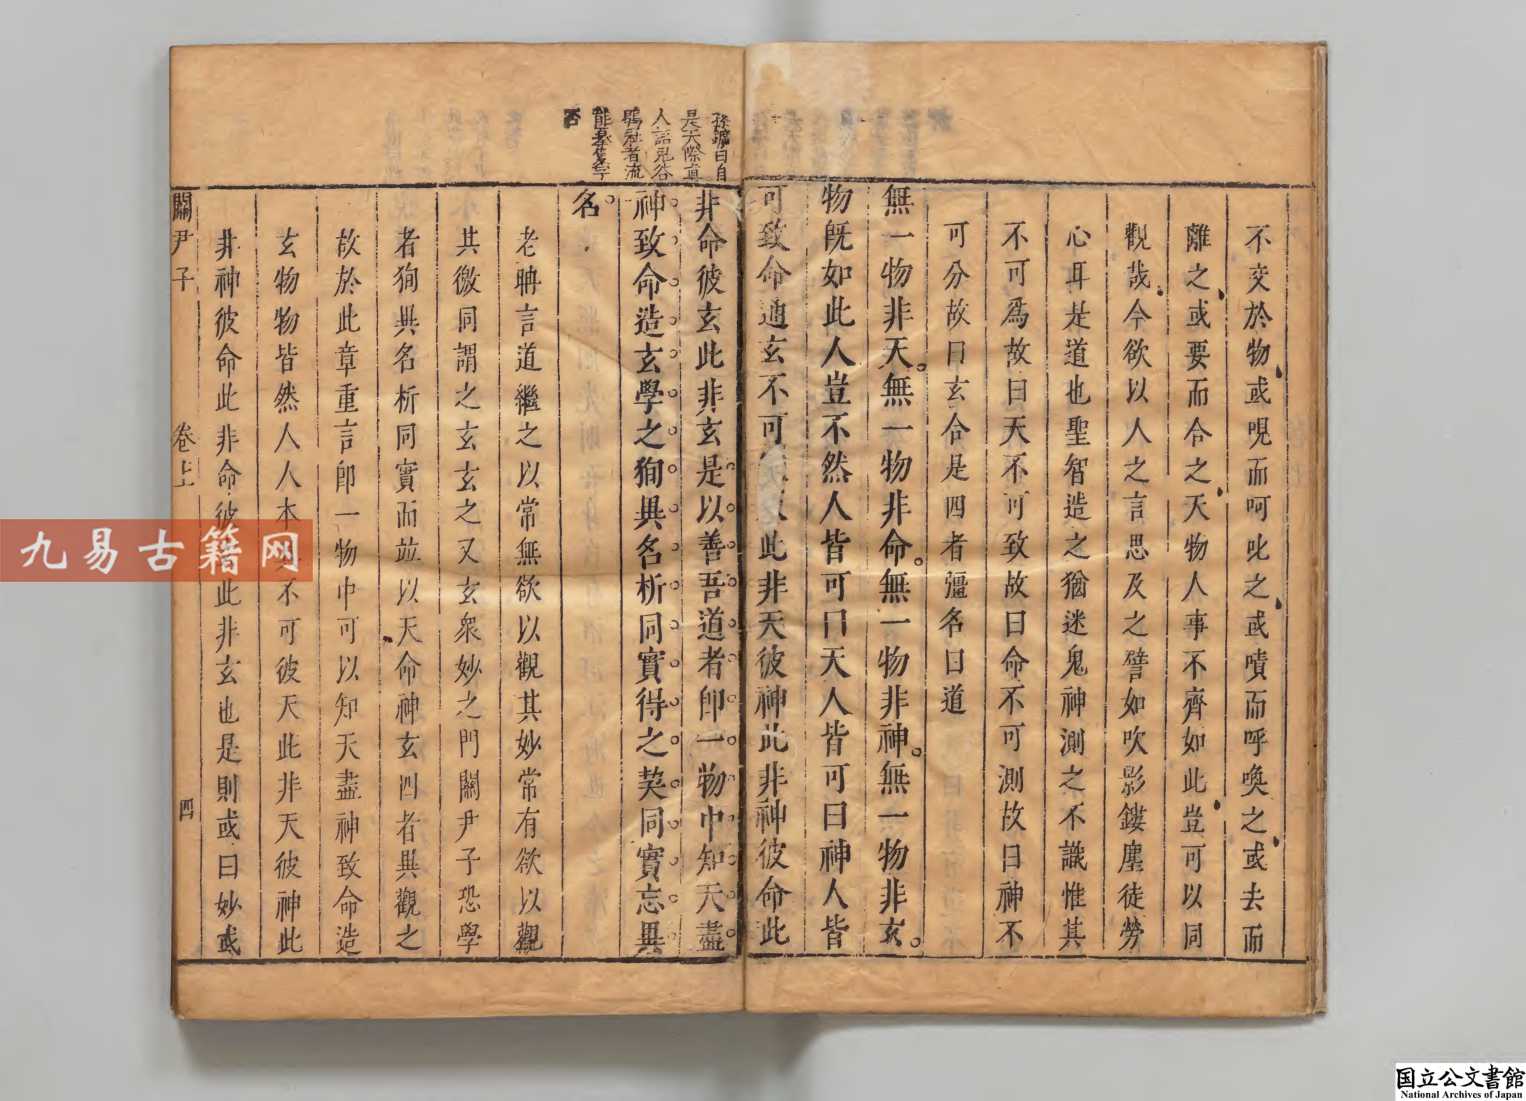 不交於物或哯而呵叱之或嘖而呼喚之或去而
離之或要而合之天物人事不齊如此豈可以同
觀哉今欲以人之言思及之譬如吹影鏤塵徒勞
心耳是道也聖智造之猶迷鬼神測之不識惟其
不可爲故曰天不可致故曰命不可測故曰神不
可分故曰玄合是四者彊名曰道
無一物非天無一物非命無一物非神無一物非玄
物旣如此人豈不然人皆可曰天人皆可曰神人皆
可致命通玄不可此非天彼神此非神彼命此
非命彼玄此非玄是以善吾道者卽一物中知天盡
神致命造玄學之狥異名析同實得之契同實忘異
名
孫鑛曰自
是天際眞
人話見谷
者流
老聃言道繼之以常無欲以觀其妙常有欲以觀
其徼同謂之玄玄之又玄衆妙之門關尹子恐學
者狥異名析同實而竝以天命神玄四者異觀之
故於此章重言卽一物中可以知天盡神致命造
玄物物皆然人人本不可彼天此非天彼神此
非神彼命此非命彼此非玄也是則或曰妙或
關尹子 卷上 四
九易古籍网
国立公文書館
National Archives of Japan